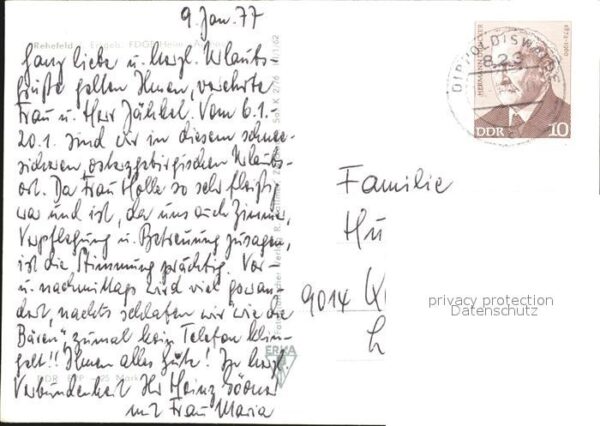 9. Jan. 77
Rehefeld
Ganz liebe u. herzl. Urlaubs-
grüße gelten Ihnen, verehrte
Frau u. Herr Jähkel. Vom 6.1.-
20.1. sind wir in diesem schnee-
sicheren, osterzgebirgischen Urlaubs-
ort. Da Frau Holle so sehr fleißig
war und ist, da uns auch Zimmer,
Verpflegung u. Betreuung zusagen,
ist die Stimmung prächtig. Vor
u. nachmittags wird viel gewan-
dert, nachts schlafen wir "wie die
Bären", zumal kein Telefon klin-
gelt!! Ihnen alles Gute! In herzl.
Verbundenheit Ihr Heinz
und Frau Maria
ERKA
DIPPOLDISWALDE
823
HERMANN
1872-1960
DDR 10
Familie
Hu
9014
privacy protection
Datenschutz